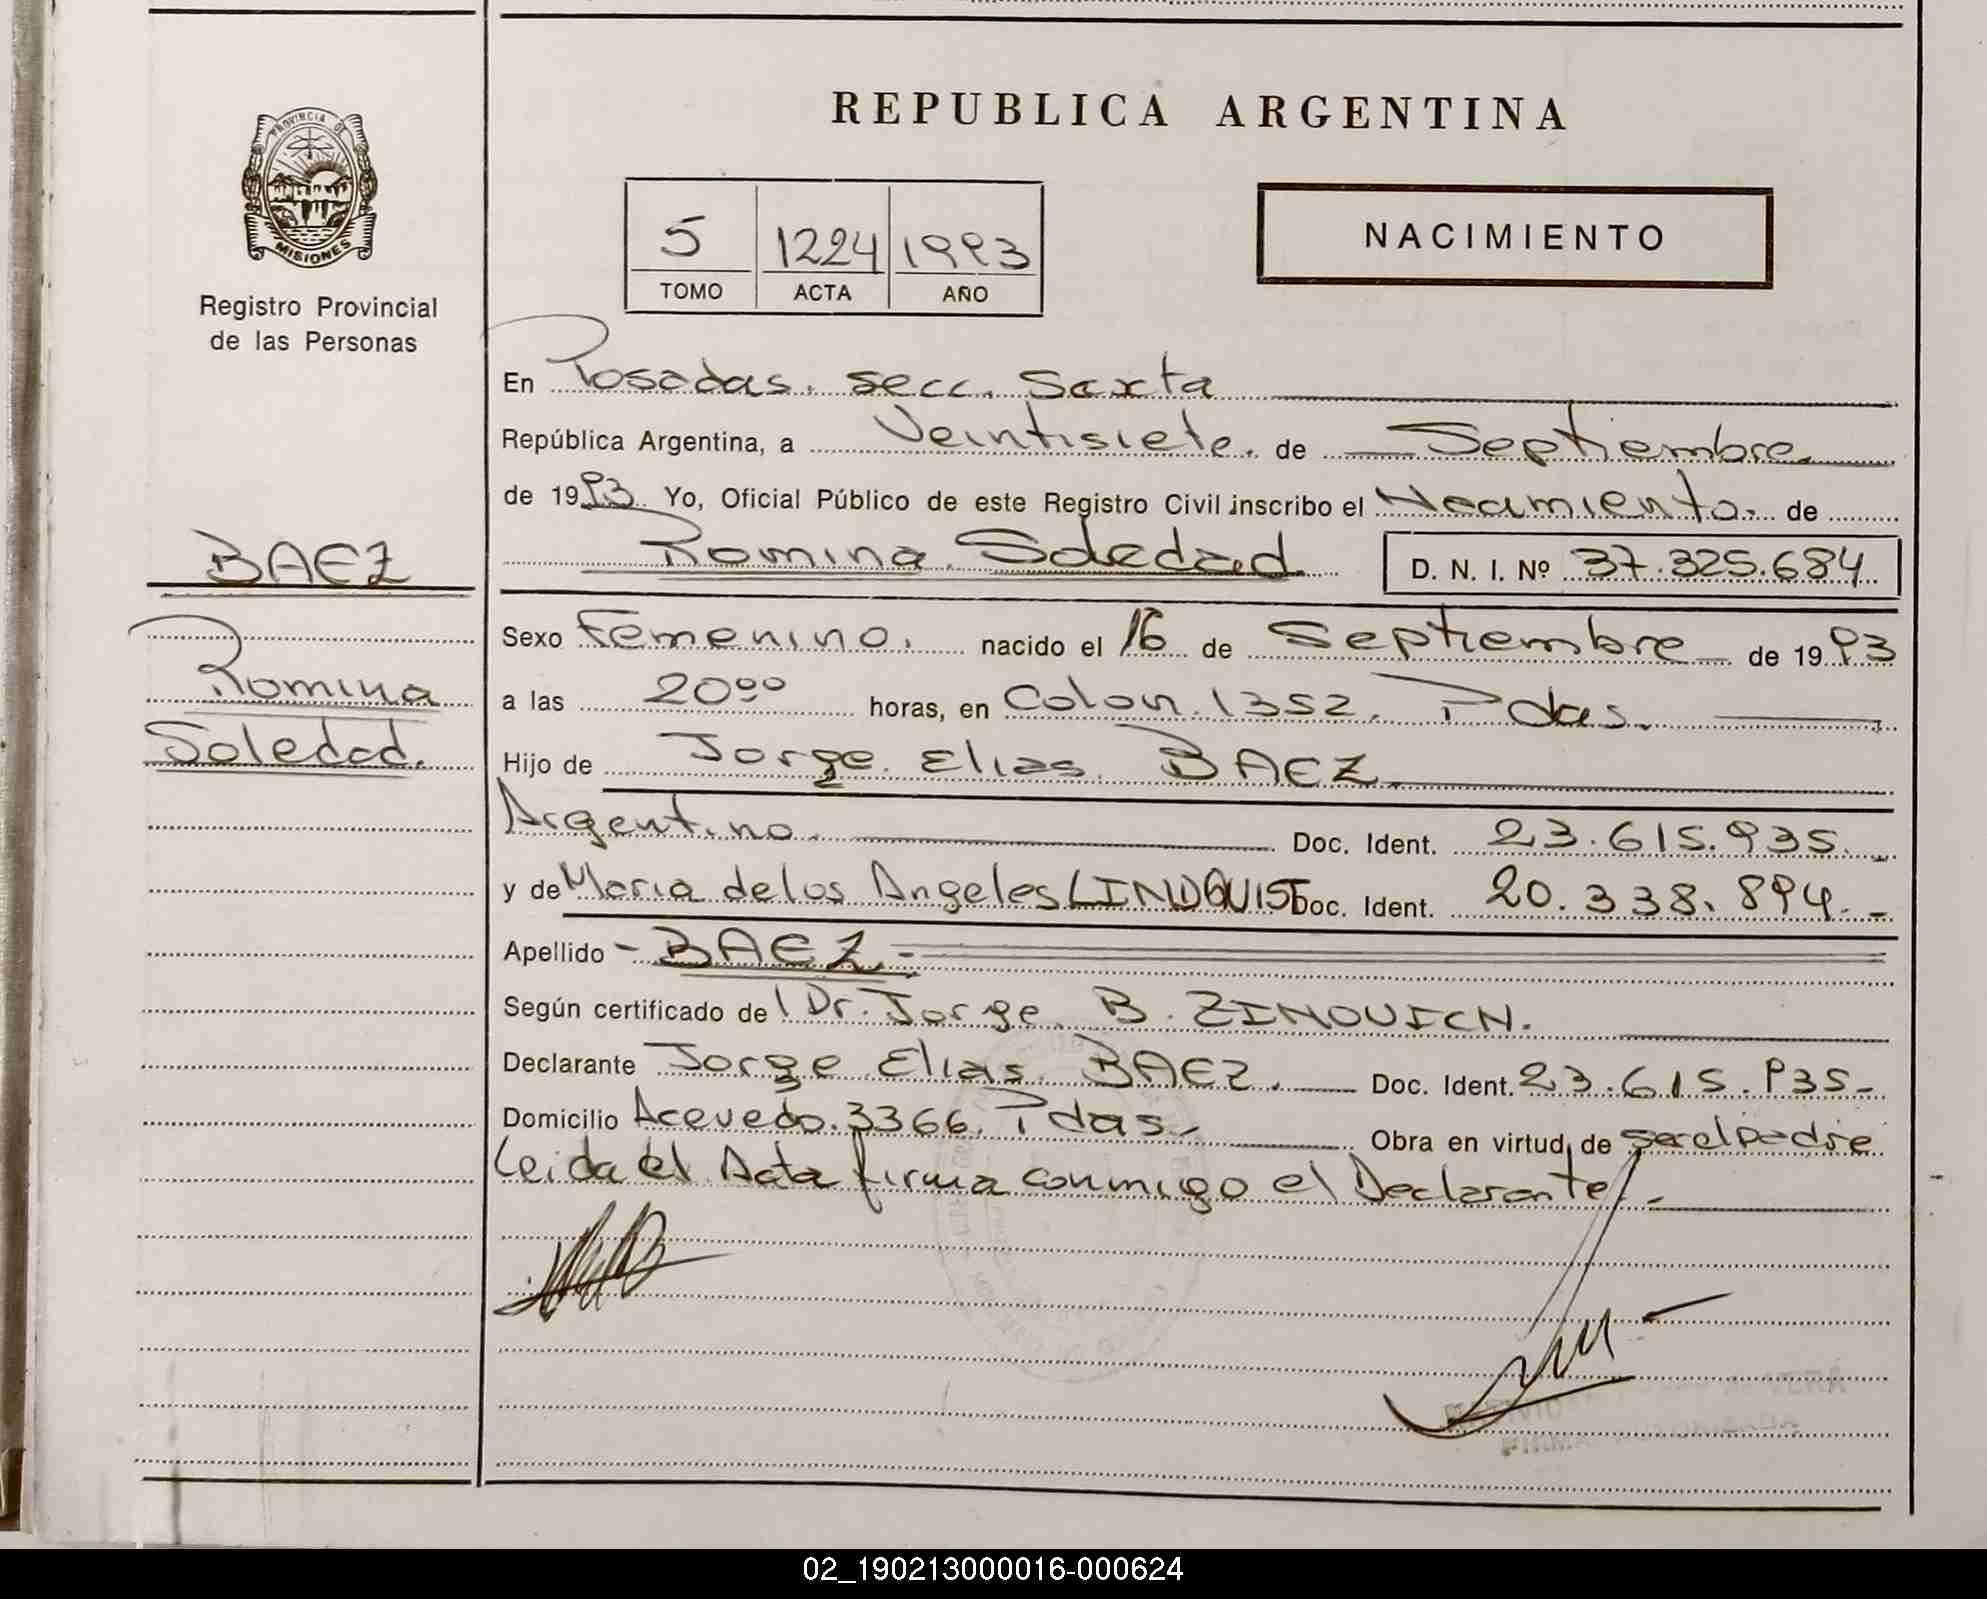 REPUBLICA ARGENTINA
PROVINCIA DE
MISIONES
Registro Provincial
de las Personas
5 1224 1993
TOMO ACTA AÑO
NACIMIENTO
En Posadas. secc. Sexta
República Argentina, a Veintisiete. de Septiembre.
de 1993. Yo, Oficial Público de este Registro Civil inscribo el Nacimiento. de
Romina Soledad D. N. I. Nº 37.325.684
BAEZ
Romina
Soledad.
Sexo Femenino. nacido el 16 de Septiembre de 1993
a las 20⁰⁰ horas, en Colon. 1352. Pdas.
Hijo de Jorge Elias BAEZ
Argentino. Doc. Ident. 23.615.935.
y de Maria de los Angeles LINDQUIST Doc. Ident. 20.338.894.-
Apellido - BAEZ.-
Según certificado del Dr. Jorge B. ZINOVICH.
Declarante Jorge Elias BAEZ. Doc. Ident. 23.615.935-
Domicilio Acevedo. 3366. Pdas. Obra en virtud de ser el padre
Leida el Acta firma conmigo el Declarante.-
02_190213000016-000624